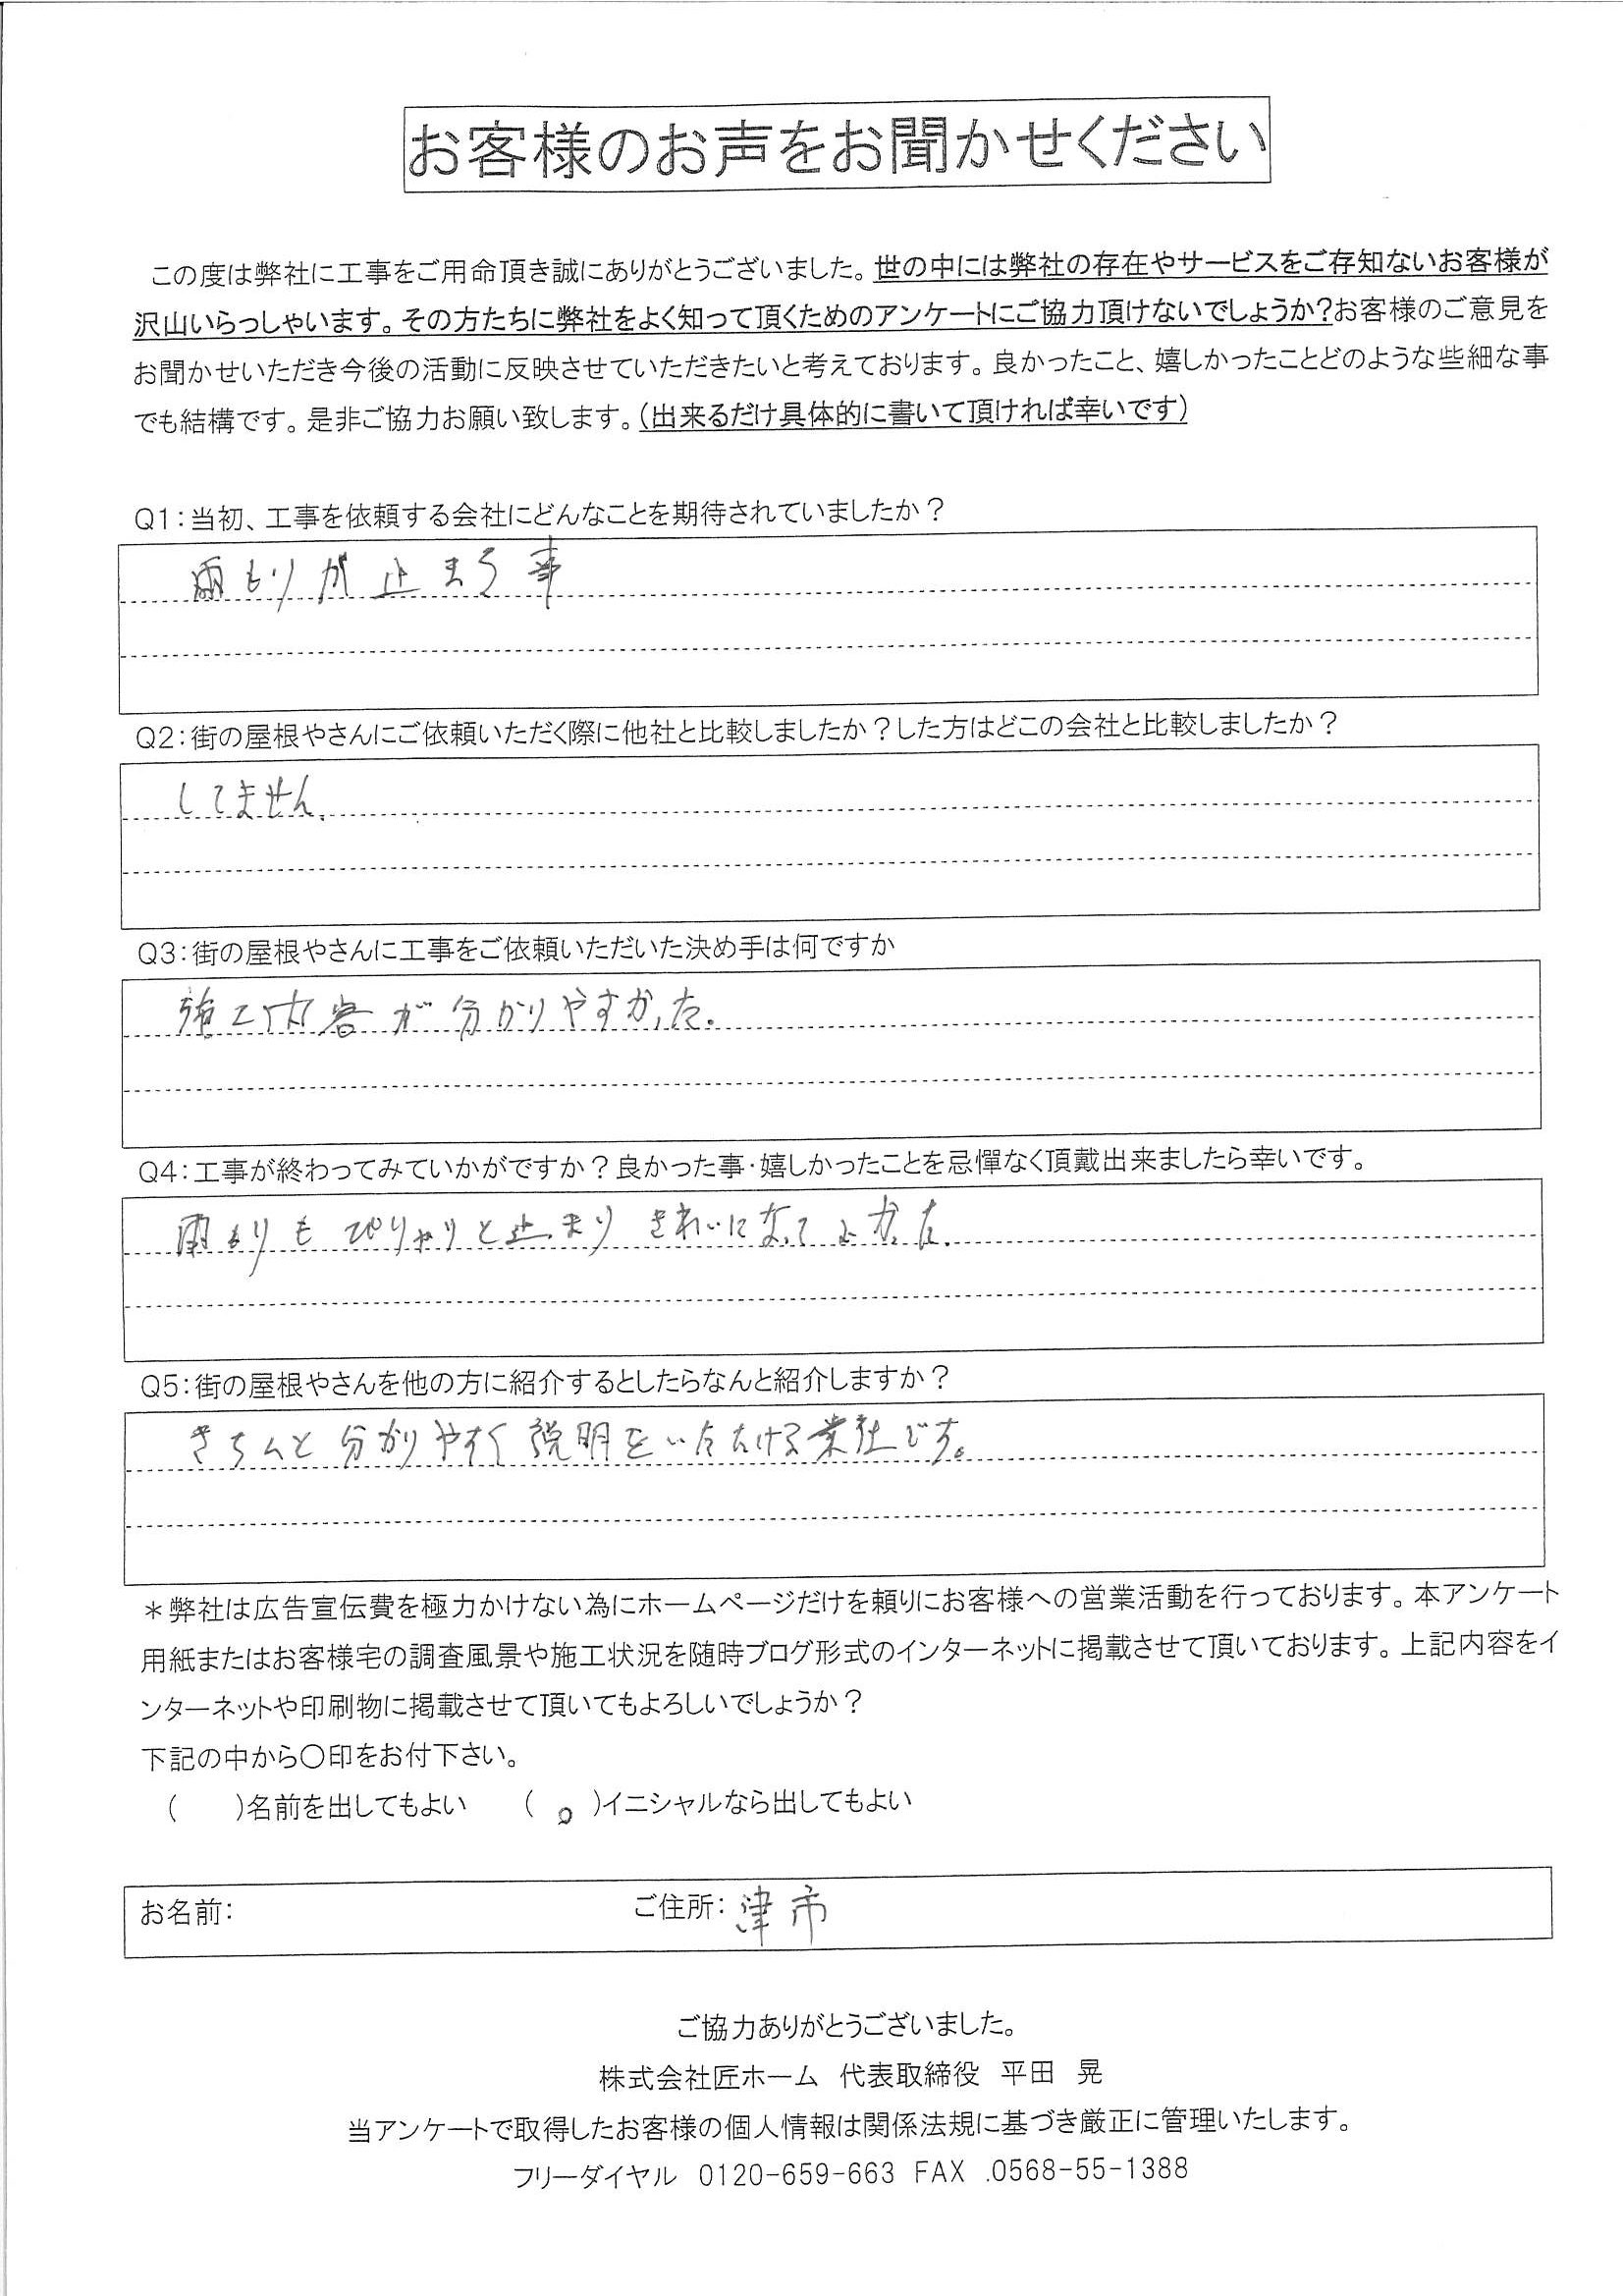 お客様のお声をお聞かせください
この度は弊社に工事をご用命頂き誠にありがとうございました。世の中には弊社の存在やサービスをご存知ないお客様が
沢山いらっしゃいます。その方たちに弊社をよく知って頂くためのアンケートにご協力頂けないでしょうか?お客様のご意見を
お聞かせいただき今後の活動に反映させていただきたいと考えております。良かったこと、嬉しかったことどのような些細な事
でも結構です。是非ご協力お願い致します。(出来るだけ具体的に書いて頂ければ幸いです)
Q1:当初、工事を依頼する会社にどんなことを期待されていましたか?
雨もりが止まる事
Q2:街の屋根やさんにご依頼いただく際に他社と比較しましたか?した方はどこの会社と比較しましたか?
してません.
Q3:街の屋根やさんに工事をご依頼いただいた決め手は何ですか
施工内容が分かりやすかった.
Q4:工事が終わってみていかがですか?良かった事・嬉しかったことを忌憚なく頂戴出来ましたら幸いです。
雨もりもぴりゃりと止まりきれいになってよかった.
Q5:街の屋根やさんを他の方に紹介するとしたらなんと紹介しますか?
きちんと分かりやすく説明をいただける業社です。
＊弊社は広告宣伝費を極力かけない為にホームページだけを頼りにお客様への営業活動を行っております。本アンケート
用紙またはお客様宅の調査風景や施工状況を随時ブログ形式のインターネットに掲載させて頂いております。上記内容をイ
ンターネットや印刷物に掲載させて頂いてもよろしいでしょうか?
下記の中から〇印をお付下さい。
(　　)名前を出してもよい　　( ○ )イニシャルなら出してもよい
お名前:　　ご住所: 津市
ご協力ありがとうございました。
株式会社匠ホーム　代表取締役　平田　晃
当アンケートで取得したお客様の個人情報は関係法規に基づき厳正に管理いたします。
フリーダイヤル　0120-659-663 FAX .0568-55-1388